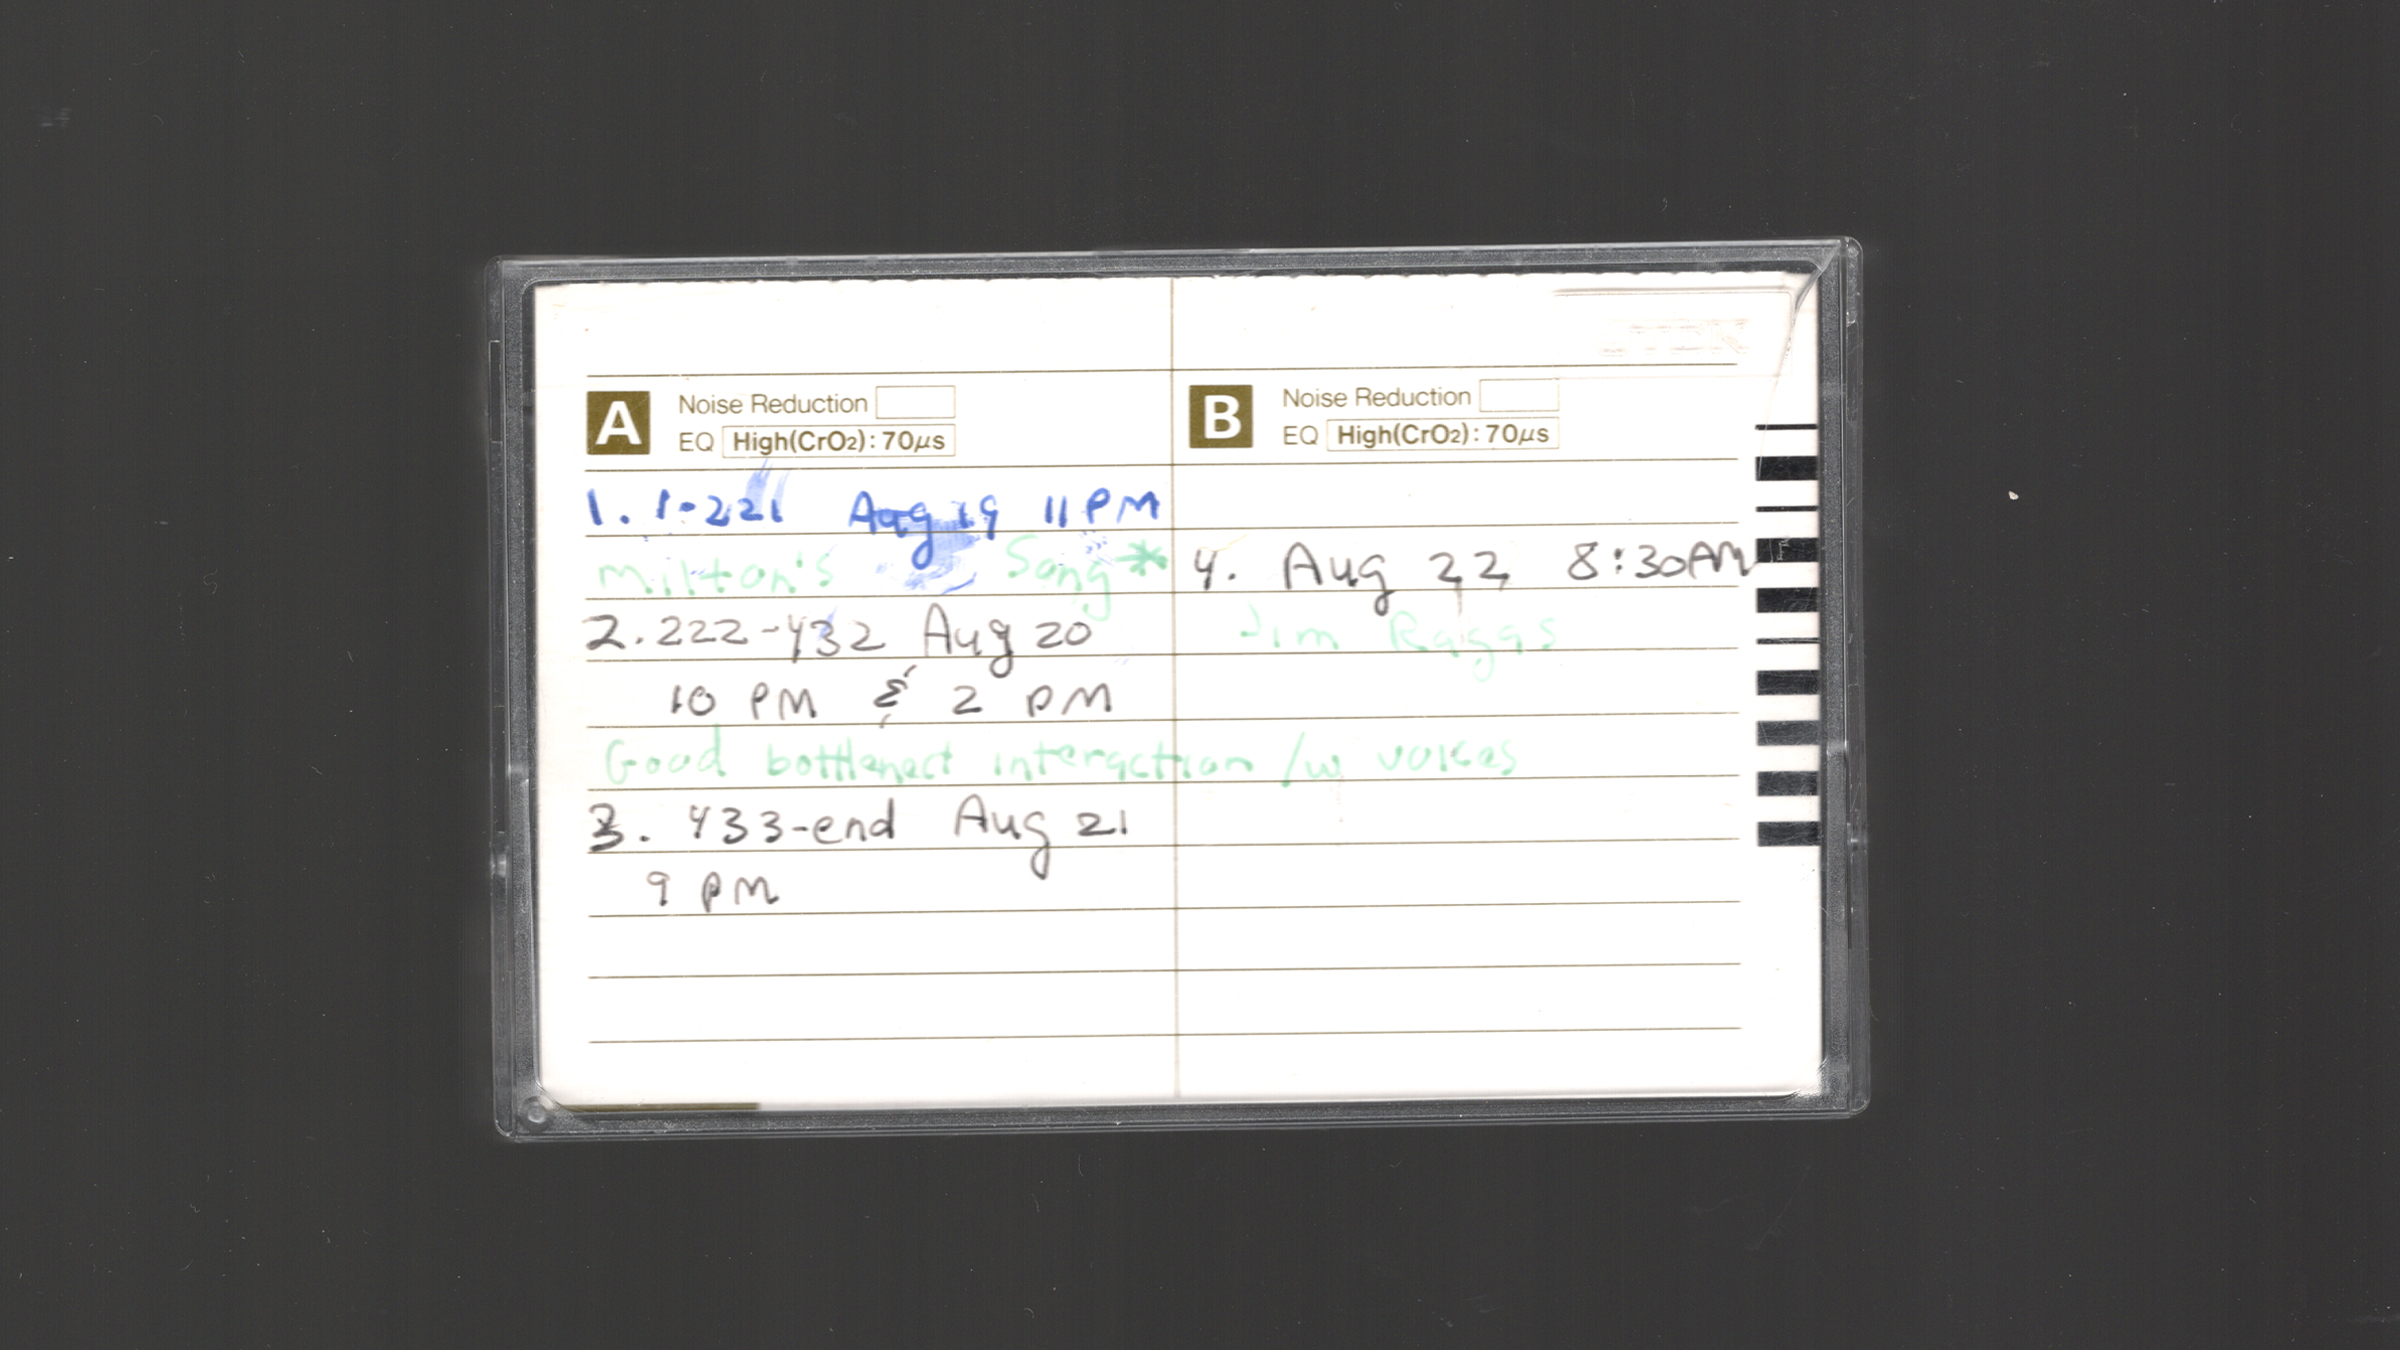 TDK
A Noise Reduction
EQ High(CrO2): 70µs
1. 1-221 Aug 19 11 PM
Milton's Song *
2. 222-432 Aug 20
10 PM & 2 PM
Good bottlenect interaction /w voices
3. 433-end Aug 21
9 PM
B Noise Reduction
EQ High(CrO2): 70µs
4. Aug 22 8:30AM
Jim Ragas